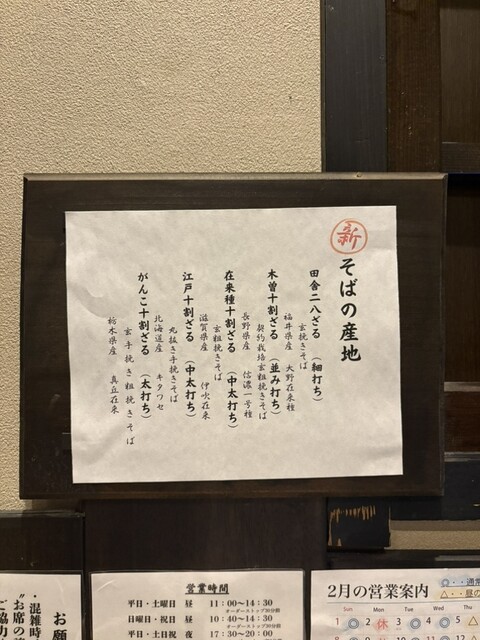 新 そばの産地
田舎二八ざる (細打ち)
玄挽きそば
福井県産 大野在来種
木曽十割ざる (並み打ち)
契約栽培玄粗挽きそば
長野県産 信濃一号種
在来種十割ざる (中太打ち)
玄粗挽きそば
滋賀県産 伊吹在来
江戸十割ざる (中太打ち)
丸抜き手挽きそば
北海道産 キタワセ
がんこ十割ざる (太打ち)
玄手挽き粗挽きそば
栃木県産 真立在来
お願
・混雑時
"お席の
ご協力
営業時間
平日・土曜日 昼 11:00〜14:30
オーダーストップ30分前
日曜日・祝日 昼 10:40〜14:30
オーダーストップ30分前
平日・土日祝 夜 17:30〜20:00
2月の営業案内
◎・・通常
△・・昼の
Sun Mon Tue Wed Thu
1 2 休 3 4 5